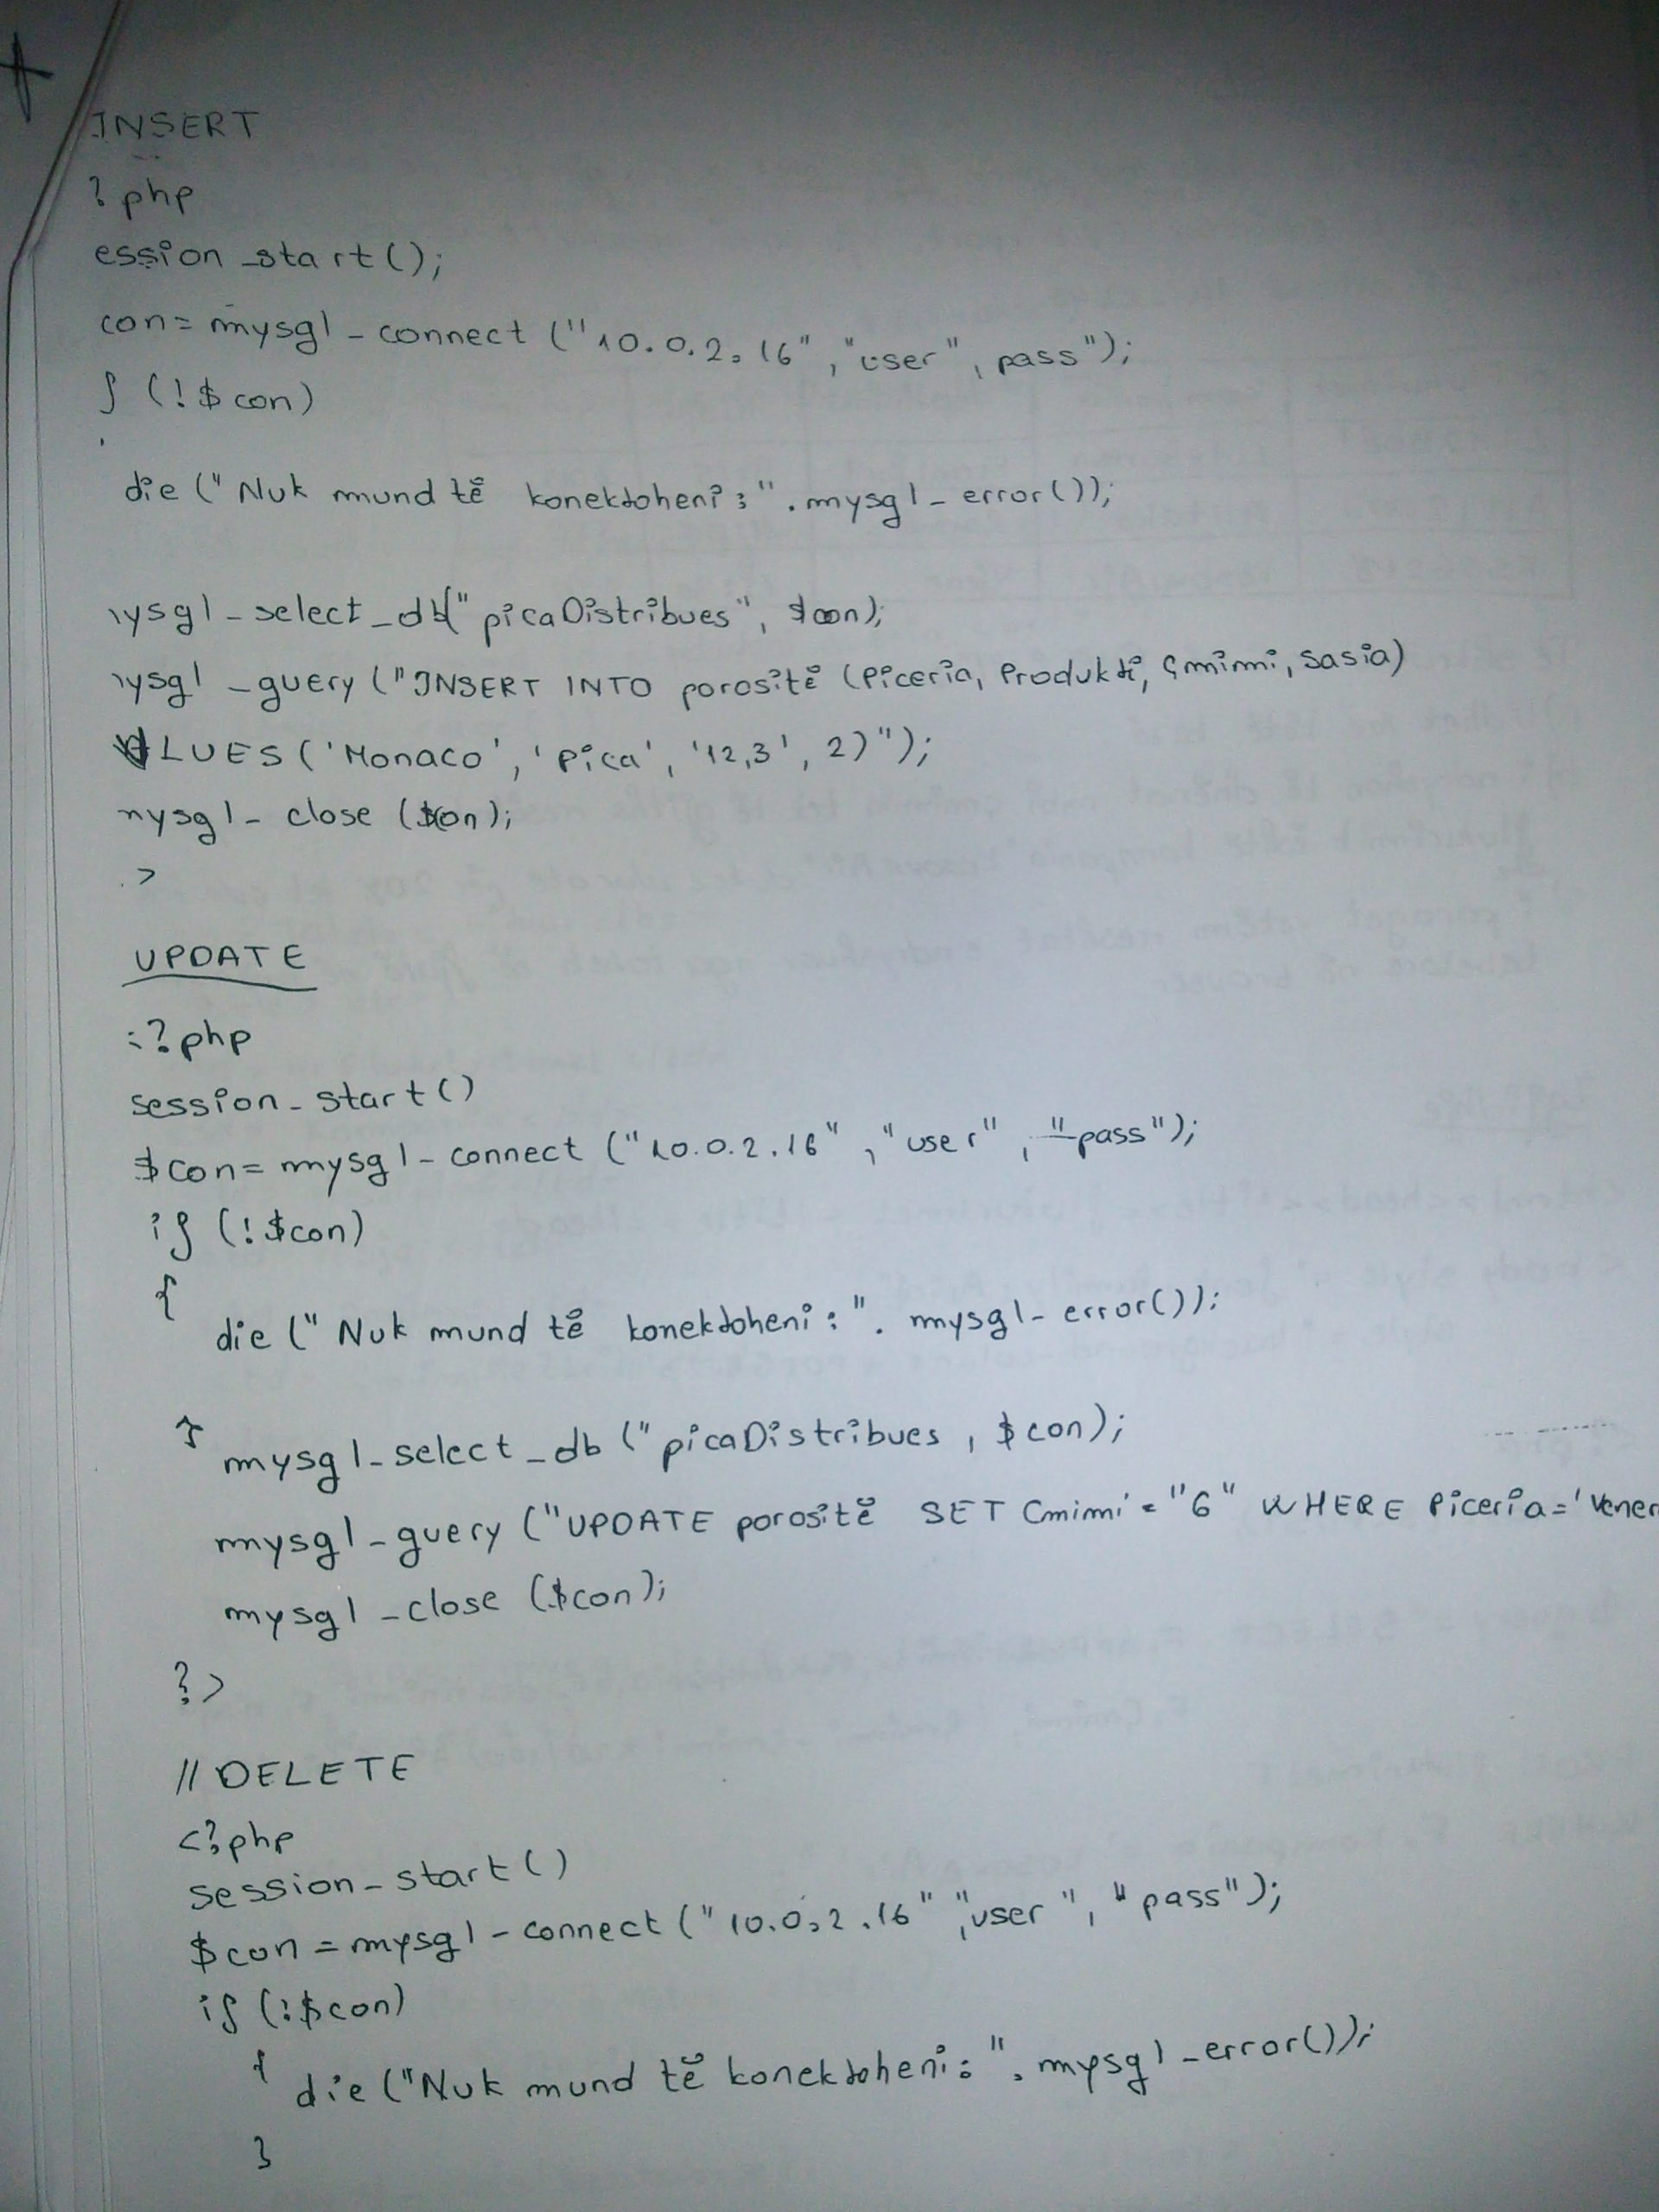 INSERT
?php
ession_start();
con= mysql-connect ("10.0.2.16", "user", pass");
f (!$con)
die ("Nuk mund të konektoheni:".mysql-error());
ysql-select_db("picaDistribues", $con);
ysql-query ("INSERT INTO porositë (Piceria, Produkti, Çmimi, Sasia)
VALUES ('Monaco', 'Pica', '12,3', 2)");
mysql-close ($con);
>
UPDATE
<?php
session-start()
$con= mysql-connect ("10.0.2.16", "user", "pass");
if (!$con)
{
die ("Nuk mund të konektoheni:". mysql-error());
}
mysql-select_db ("picaDistribues, $con);
mysql-query ("UPDATE porositë SET Cmimi = "6" WHERE Piceria='Vener
mysql-close ($con);
?>
// DELETE
<?php
session-start()
$con = mysql-connect ("10.0.2.16" ,"user", "pass");
if (!$con)
{ die ("Nuk mund të konektoheni:". mysql-error());
}